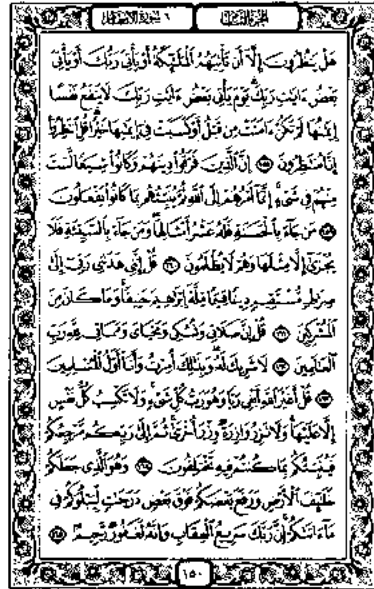 الجزء الثامن
٦ سورة الأنعام
هَلْ يَنظُرُونَ إِلَّا أَن تَأْتِيَهُمُ الْمَلَائِكَةُ أَوْ يَأْتِيَ رَبُّكَ أَوْ يَأْتِيَ
بَعْضُ ءَايَاتِ رَبِّكَ يَوْمَ يَأْتِي بَعْضُ ءَايَاتِ رَبِّكَ لَا يَنفَعُ نَفْسًا
إِيمَانُهَا لَمْ تَكُنْ ءَامَنَتْ مِن قَبْلُ أَوْ كَسَبَتْ فِي إِيمَانِهَا خَيْرًا قُلِ انتَظِرُوا
إِنَّا مُنتَظِرُونَ ١٥٨ إِنَّ الَّذِينَ فَرَّقُوا دِينَهُمْ وَكَانُوا شِيَعًا لَّسْتَ
مِنْهُمْ فِي شَيْءٍ إِنَّمَا أَمْرُهُمْ إِلَى اللَّهِ ثُمَّ يُنَبِّئُهُم بِمَا كَانُوا يَفْعَلُونَ
١٥٩ مَن جَاءَ بِالْحَسَنَةِ فَلَهُ عَشْرُ أَمْثَالِهَا وَمَن جَاءَ بِالسَّيِّئَةِ فَلَا
يُجْزَى إِلَّا مِثْلَهَا وَهُمْ لَا يُظْلَمُونَ ١٦٠ قُلْ إِنَّنِي هَدَانِي رَبِّي إِلَى
صِرَاطٍ مُّسْتَقِيمٍ دِينًا قِيَمًا مِّلَّةَ إِبْرَاهِيمَ حَنِيفًا وَمَا كَانَ مِنَ
الْمُشْرِكِينَ ١٦١ قُلْ إِنَّ صَلَاتِي وَنُسُكِي وَمَحْيَايَ وَمَمَاتِي لِلَّهِ رَبِّ
الْعَالَمِينَ ١٦٢ لَا شَرِيكَ لَهُ وَبِذَٰلِكَ أُمِرْتُ وَأَنَا أَوَّلُ الْمُسْلِمِينَ
١٦٣ قُلْ أَغَيْرَ اللَّهِ أَبْغِي رَبًّا وَهُوَ رَبُّ كُلِّ شَيْءٍ وَلَا تَكْسِبُ كُلُّ نَفْسٍ
إِلَّا عَلَيْهَا وَلَا تَزِرُ وَازِرَةٌ وِزْرَ أُخْرَى ثُمَّ إِلَى رَبِّكُم مَّرْجِعُكُمْ
فَيُنَبِّئُكُم بِمَا كُنتُمْ فِيهِ تَخْتَلِفُونَ ١٦٤ وَهُوَ الَّذِي جَعَلَكُمْ
خَلَائِفَ الْأَرْضِ وَرَفَعَ بَعْضَكُمْ فَوْقَ بَعْضٍ دَرَجَاتٍ لِّيَبْلُوَكُمْ فِي
مَا ءَاتَاكُمْ إِنَّ رَبَّكَ سَرِيعُ الْعِقَابِ وَإِنَّهُ لَغَفُورٌ رَّحِيمٌ ١٦٥
١٥٠